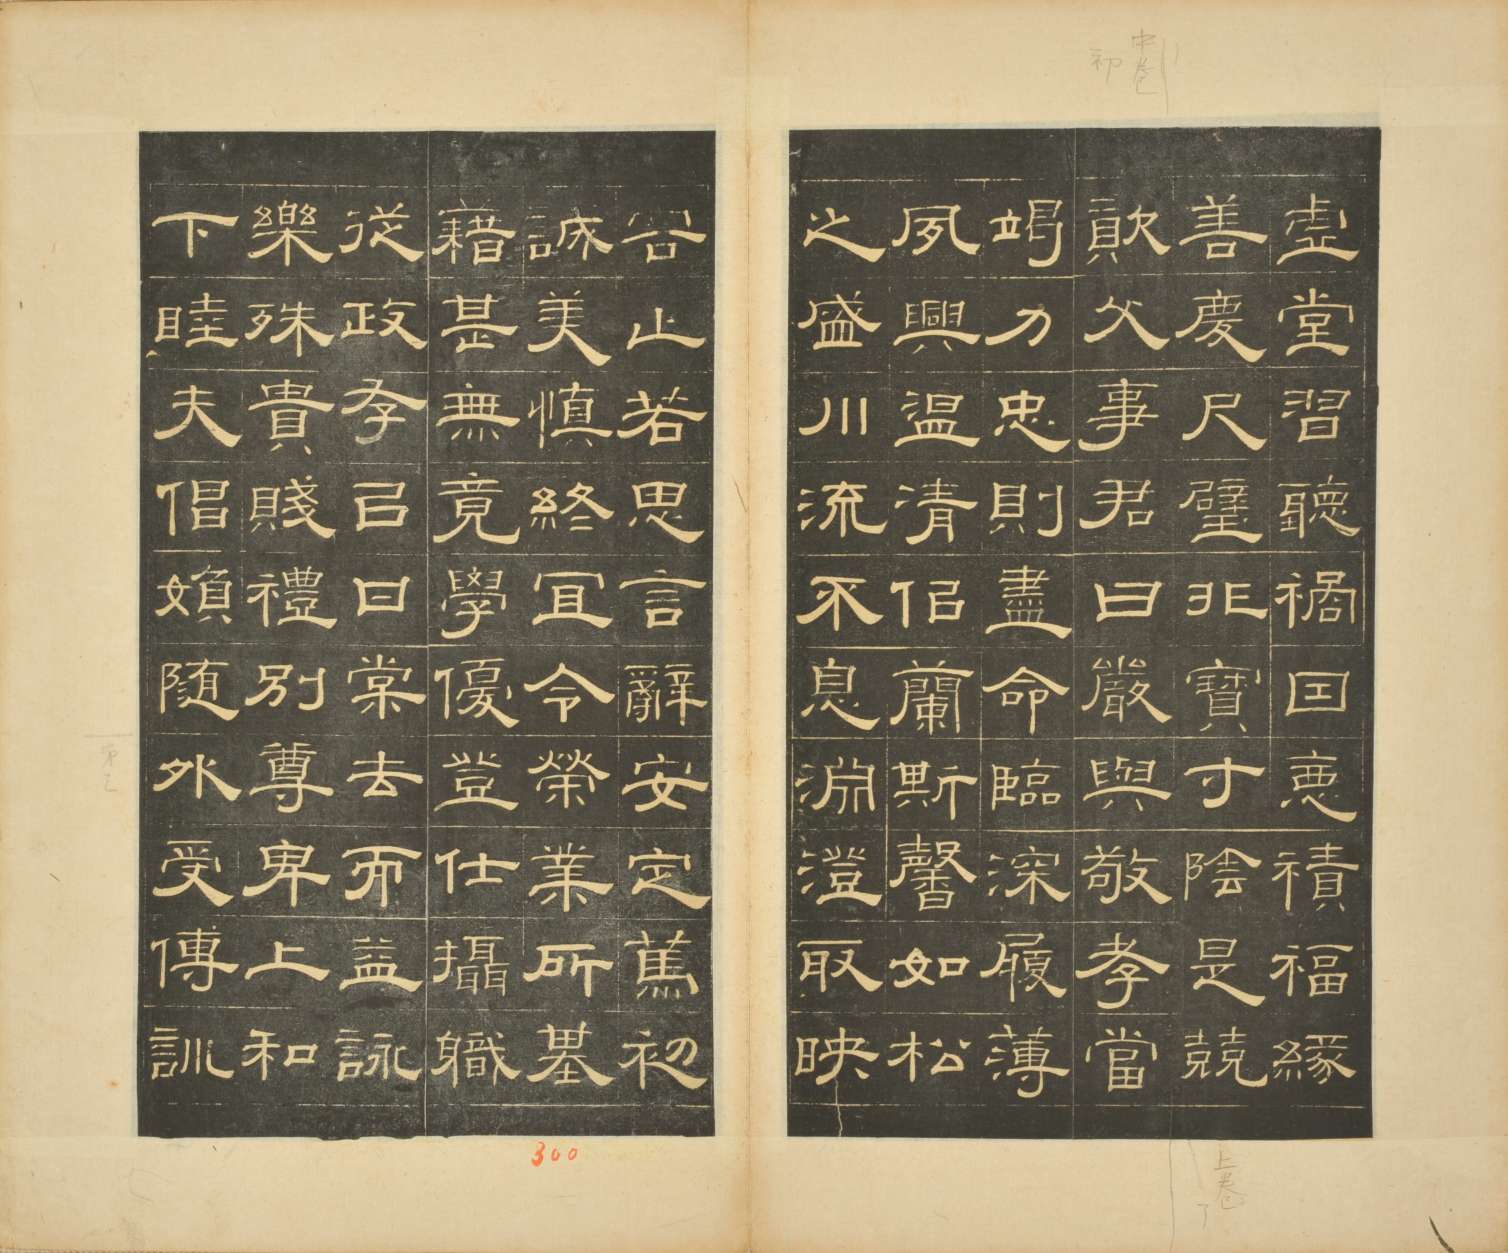 中卷
初
虛堂習聽禍因惡積福緣
善慶尺璧非寶寸陰是競
資父事君曰嚴與敬孝當
竭力忠則盡命臨深履薄
夙興温清似蘭斯馨如松
之盛川流不息淵澄取映
容止若思言辭安定篤初
誠美慎終宜令榮業所基
藉甚無竟學優登仕攝職
從政存㠯甘棠去而益詠
樂殊貴賤禮別尊卑上和
下睦夫倡婦随外受傅訓
上卷
了
300